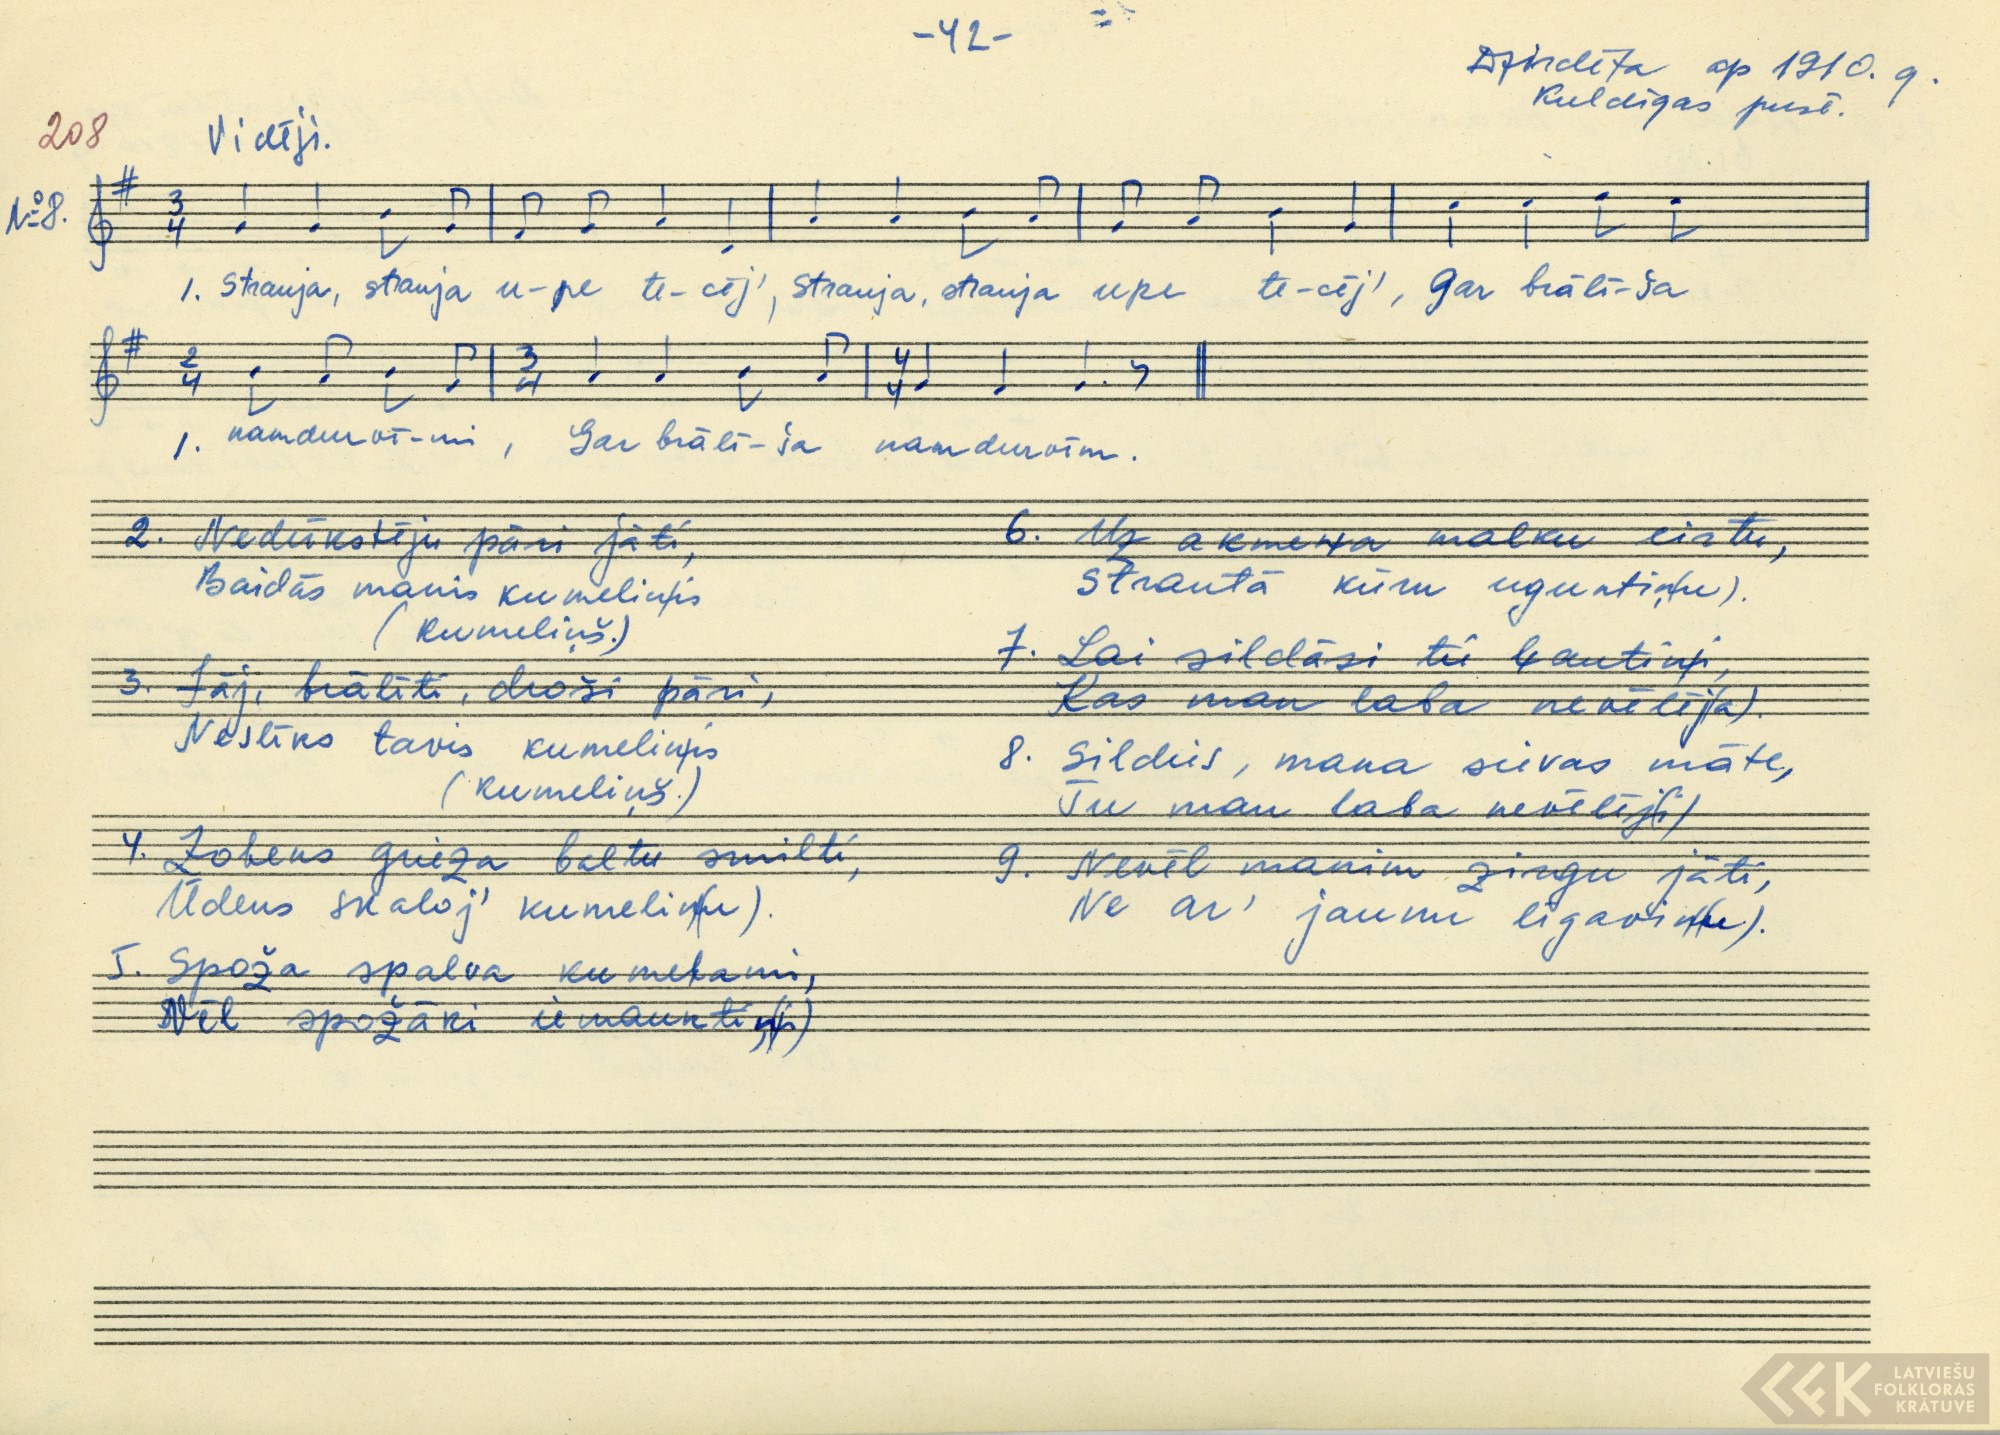 -42-
Dzirdēta ap 1910. g.
Kuldīgas pusē.
208
Vidēji.
№8.
3/4
1. Strauja, strauja u-pe te-cēj', strauja, strauja upe te-cēj', gar brālī-ša
2/4 3/4 4/4
1. namdurvī-mi, Gar brālī-ša namdurvīm.
2. Nedrīkstēju pāri jāti,
Baidās manis kumeliņis
(kumeliņš.)
3. Jāj, brālīti, droši pāri,
Neslīks tavis kumeliņis
(kumeliņš.)
4. Zobens grieza baltu smilti,
Ūdens skaloj' kumeliņ(u).
5. Spoža spalva kumeļami,
Vēl spožāki iemauktiņ(i)
6. Uz akmeņa malku cirtu,
Strautā kūru uguntiņ(u).
7. Lai sildāsi tie ļautiņi,
Kas man laba nevēlēj(a).
8. Sildies, mana sievas māte,
Tu man laba nevēlēj(i)
9. Nevēl manim zirgu jāti,
Ne ar' jaunu līgaviņ(u).
LATVIEŠU
FOLKLORAS
KRĀTUVE